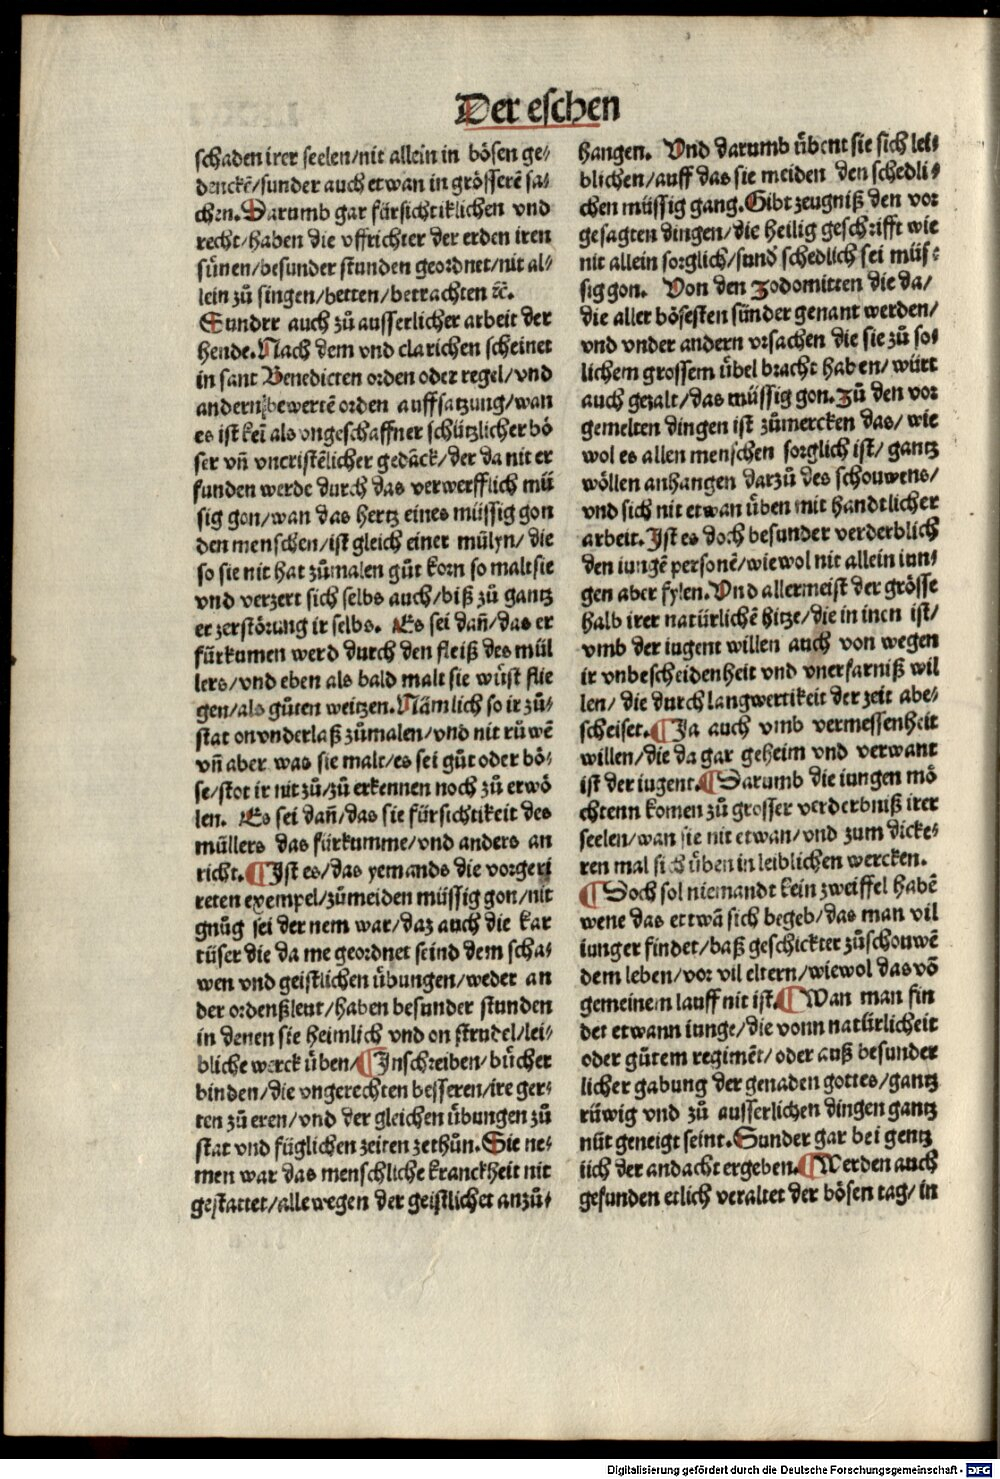 Der eschen
schaden irer seelen/nit allein in bösen ge⸗
denckē/sunder auch etwan in grösserē sa⸗
chen. Darumb gar fürsichtiklichen vnd
recht/haben die vffrichter der erden iren
sünen/besunder stunden geordnet/nit al⸗
lein zů singen/betten/betrachten ꝛc̄.
Sundrr auch zů ausserlicher arbeit der
hende. Nach dem vnd clarichen scheinet
in sant Benedicten orden oder regel/vnd
andern bewertē orden auffsatzung/wan
es ist keī als ongeschaffner schützlicher bö
ser vn̄ vncristēlicher gedāck/der da nit er
funden werde durch das verwerfflich mü
sig gon/wan das hertz eines müssig gon
den menschen/ist gleich einer mülyn/die
so sie nit hat zůmalen gůt korn so malt sie
vnd verzert sich selbs auch/biß zů gantz
er zerstörung ir selbs. Es sei dan̄/das er
fürkumen werd durch den fleiß des mül
lers/vnd eben als bald malt sie wůst flie
gen/als gůten weitzen. Nämlich so ir zů⸗
stat on vnderlaß zůmalen/vnd nit růwē
vn̄ aber was sie malt/es sei gůt oder bö⸗
se/stot ir nit zů/zů erkennen noch zů erwö
len. Es sei dan̄/das sie fürsichtikeit des
müllers das fürkumme/vnd anders an
richt. ¶Ist es/das yemands die vorgeri
reten exempel/zůmeiden müssig gon/nit
gnůg sei der nem war/daz auch die kar
tüser die da me geordnet seind dem scha⸗
wen vnd geistlichen übungen/weder an
der ordenßleut/haben besunder stunden
in denen sie heimlich vnd on strudel/lei⸗
bliche werck üben/¶Inschreiben/bůcher
binden/die vngerechten besseren/ire ger⸗
ten zů eren/vnd der gleichen übungen zů
stat vnd füglichen zeiten zethůn. Sie ne⸗
men war das menschliche kranckheit nit
gestattet/alle wegen der geistlichet anzů⸗
hangen. Vnd darumb übent sie sich lei⸗
blichen/auff das sie meiden den schedli⸗
chen müssig gang. Gibt zeugniß den vor
gesagten dingen/die heilig geschrifft wie
nit allein sorglich/sund̄ schedlich sei müs⸗
sig gon. Von den Zodomitten die da/
die aller bösesten sünder genant werden/
vnd vnder andern vrsachen die sie zů so⸗
lichem grossem übel bracht haben/würt
auch gezalt/das müssig gon. Zů den vor
gemelten dingen ist zůmercken das/wie
wol es allen menschen sorglich ist/gantz
wöllen anhangen darzů des schouwens/
vnd sich nit etwan üben mit handtlicher
arbeit. Ist es doch besunder verderblich
den iungē personē/wiewol nit allein iun⸗
gen aber fylen. Vnd allermeist der grösse
halb irer natürlichē hitze/die in inen ist/
vmb der iugent willen auch von wegen
ir vnbescheidenheit vnd vnerfarniß wil
len/die durch langwertikeit der zeit abe⸗
scheiset. ¶Ja auch vmb vermessenheit
willen/die da gar geheim vnd verwant
ist der iugent. ¶Darumb die iungen mö
chtenn komen zů grosser verderbniß irer
seelen/wan sie nit etwan/vnd zum dicke⸗
ren mal sich üben in leiblichen wercken.
¶Doch sol niemandt kein zweiffel habē
wene das ettwā sich begeb/das man vil
iunger findet/baß geschickter zůschouwē
dem leben/vor vil eltern/wiewol das vō
gemeinem lauff nit ist. ¶Wan man fin
det etwann iunge/die vonn natürlicheit
oder gůtem regimēt/oder auß besunder
licher gabung der genaden gottes/gantz
růwig vnd zů ausserlichen dingen gantz
nüt geneigt seint. Sunder gar bei gentz
lich der andacht ergeben. ¶Werden auch
gefunden etlich veraltet der bösen tag/in
Digitalisierung gefördert durch die Deutsche Forschungsgemeinschaft - DFG